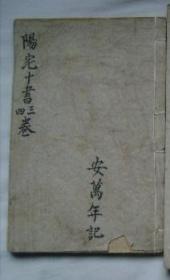 陽宅十書三四卷
安萬年記